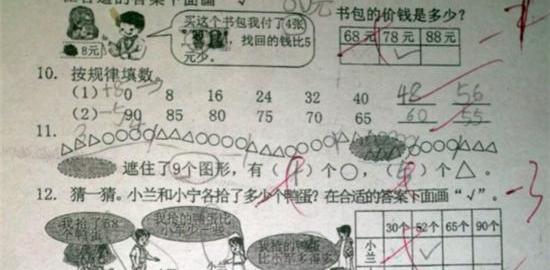 买这个书包我付了4张
找回的钱比5
元少。
8元
书包的价钱是多少?
68元 78元 88元
√
10. 按规律填数。
(1) +8 0 8 16 24 32 40 48 56
(2) -5 90 85 80 75 70 65 60 55
11.
遮住了9个图形,有( )个○,( )个△。
12. 猜一猜。小兰和小宁各拾了多少个鸭蛋?在合适的答案下面画“√”。 -3
我拾了68
我拾的鸭蛋比
小军少一些
我拾的鸭蛋
比小军多得多
30个 62个 65个 90个
小兰 √